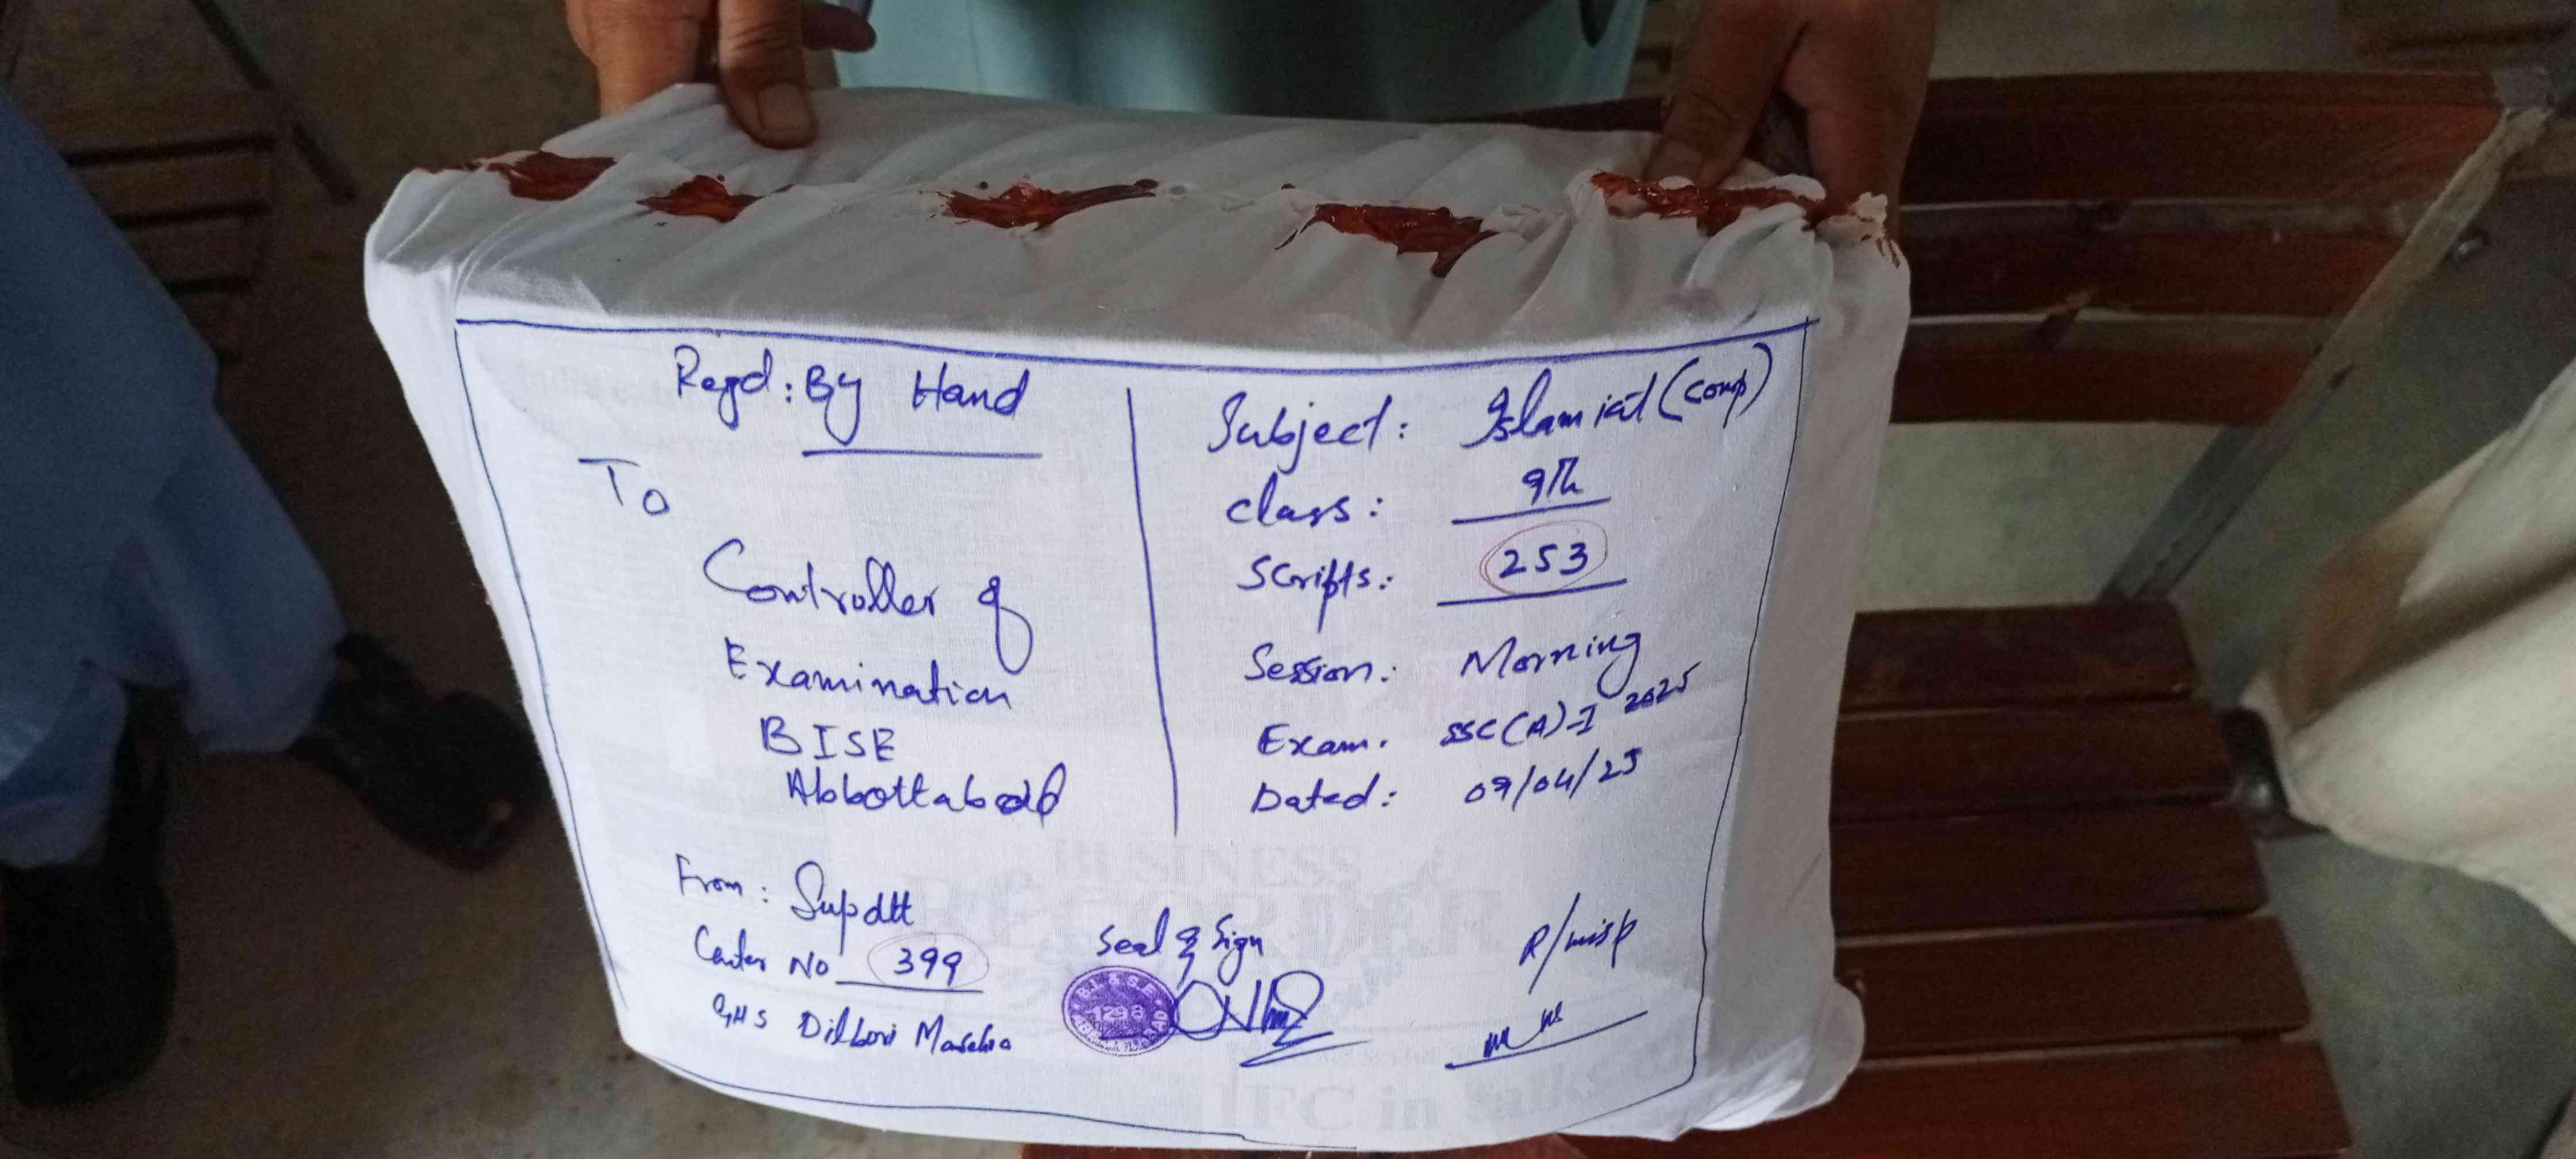 Regd: By Hand
To
Controller of
Examination
BISE
Abbottabad
Subject: Islamiat (Comp)
Class: 9th
Scripts: 253
Session: Morning
Exam. SSC(A)-I 2025
Dated: 09/04/25
From: Supdtt
Center No 399
GHS Dilbori Mansehra
Seal & Sign
B.I.S.E
1298
R/insp
BUSINESS
RECORDER
IFC in talks